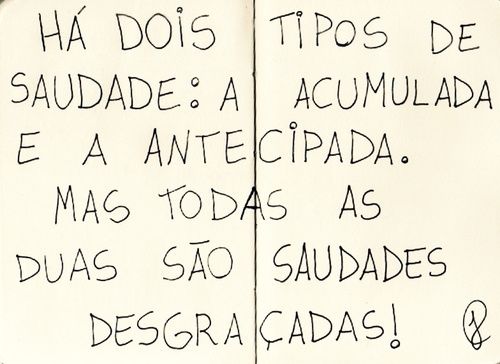 HÁ DOIS TIPOS DE
SAUDADE: A ACUMULADA
E A ANTECIPADA.
MAS TODAS AS
DUAS SÃO SAUDADES
DESGRAÇADAS!